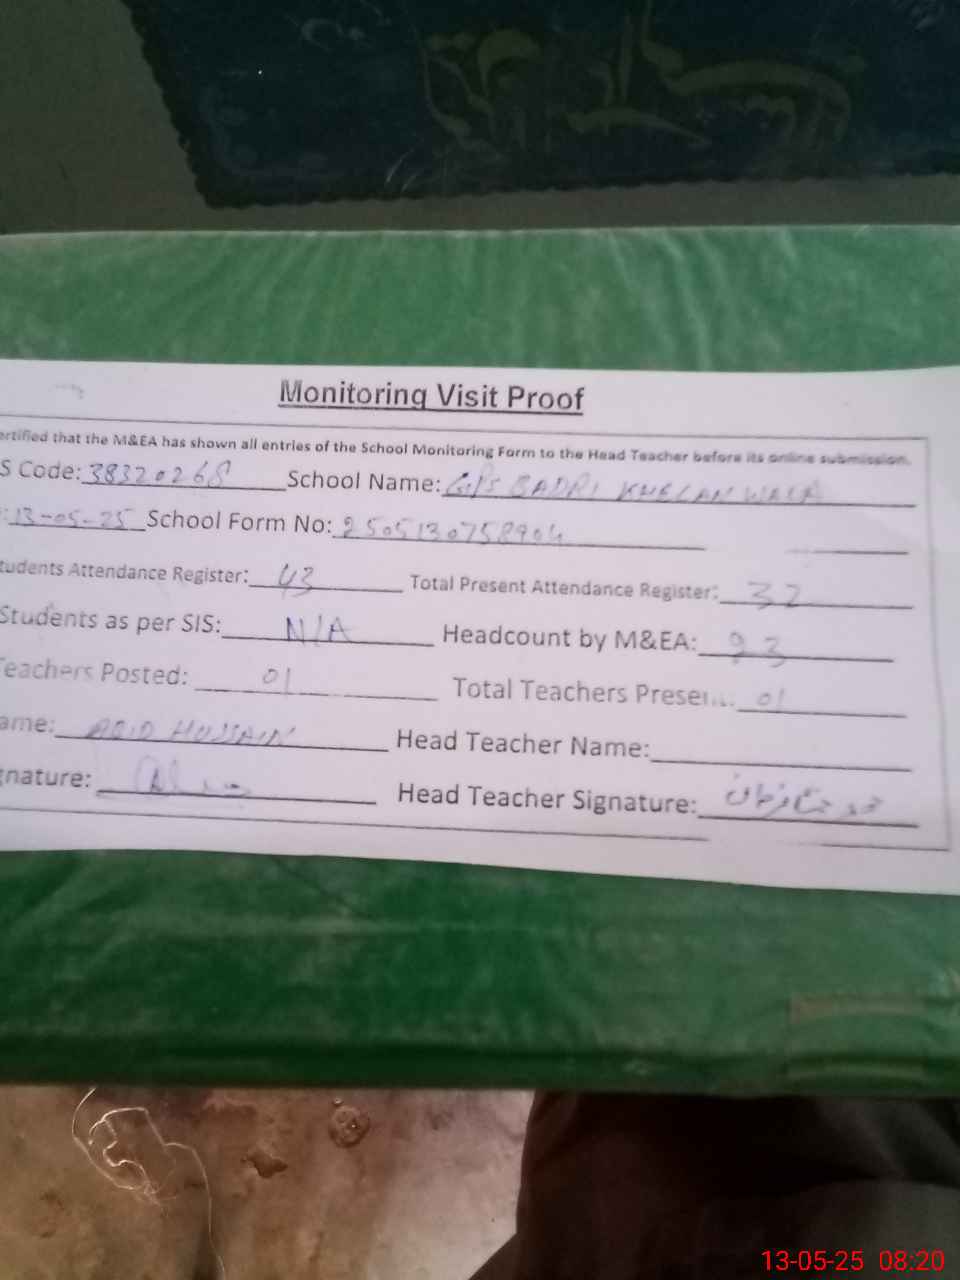 Monitoring Visit Proof
ertified that the M&EA has shown all entries of the School Monitoring Form to the Head Teacher before its online submission.
S Code: 38320268 School Name: GPS BADRI KHELAN WALA
: 13-05-25 School Form No: 2505130758904
tudents Attendance Register: 43 Total Present Attendance Register: 32
Students as per SIS: N/A Headcount by M&EA:
Teachers Posted: 01 Total Teachers Present: 01
ame: ABID HUSSAIN Head Teacher Name:
gnature: Head Teacher Signature:
13-05-25 08:20